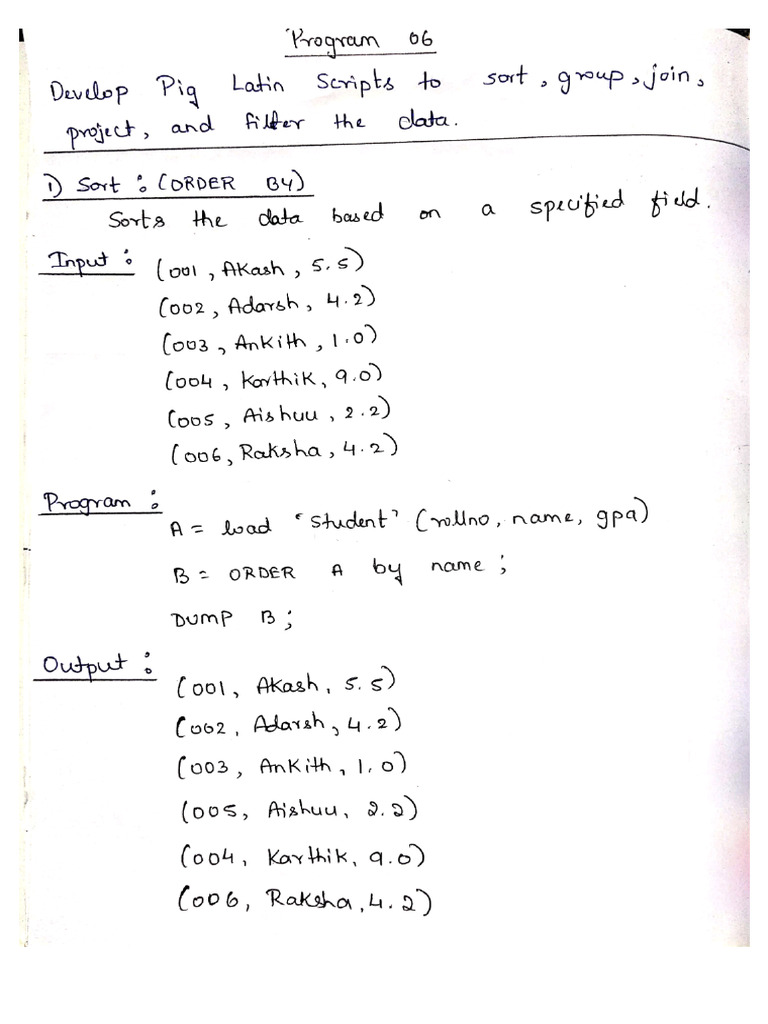 Program 06
Develop Pig Latin Scripts to sort, group, join,
project, and filter the data.
1) Sort : (ORDER BY)
Sorts the data based on a specified field.
Input : (001, Akash, 5.5)
(002, Adarsh, 4.2)
(003, Ankith, 1.0)
(004, Karthik, 9.0)
(005, Aishuu, 2.2)
(006, Raksha, 4.2)
Program :
A = load 'student' (rollno, name, gpa)
B = ORDER A by name;
DUMP B;
Output :
(001, Akash, 5.5)
(002, Adarsh, 4.2)
(003, Ankith, 1.0)
(005, Aishuu, 2.2)
(004, Karthik, 9.0)
(006, Raksha, 4.2)